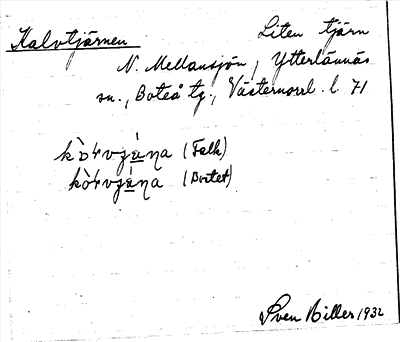 Kalvtjärnen Liten tjärn
N. Mellansjön, Ytterlännäs
sn., Boteå tg., Västernorrl. l. 71
(Falk)
(Bortet)
Sven Biller 1932